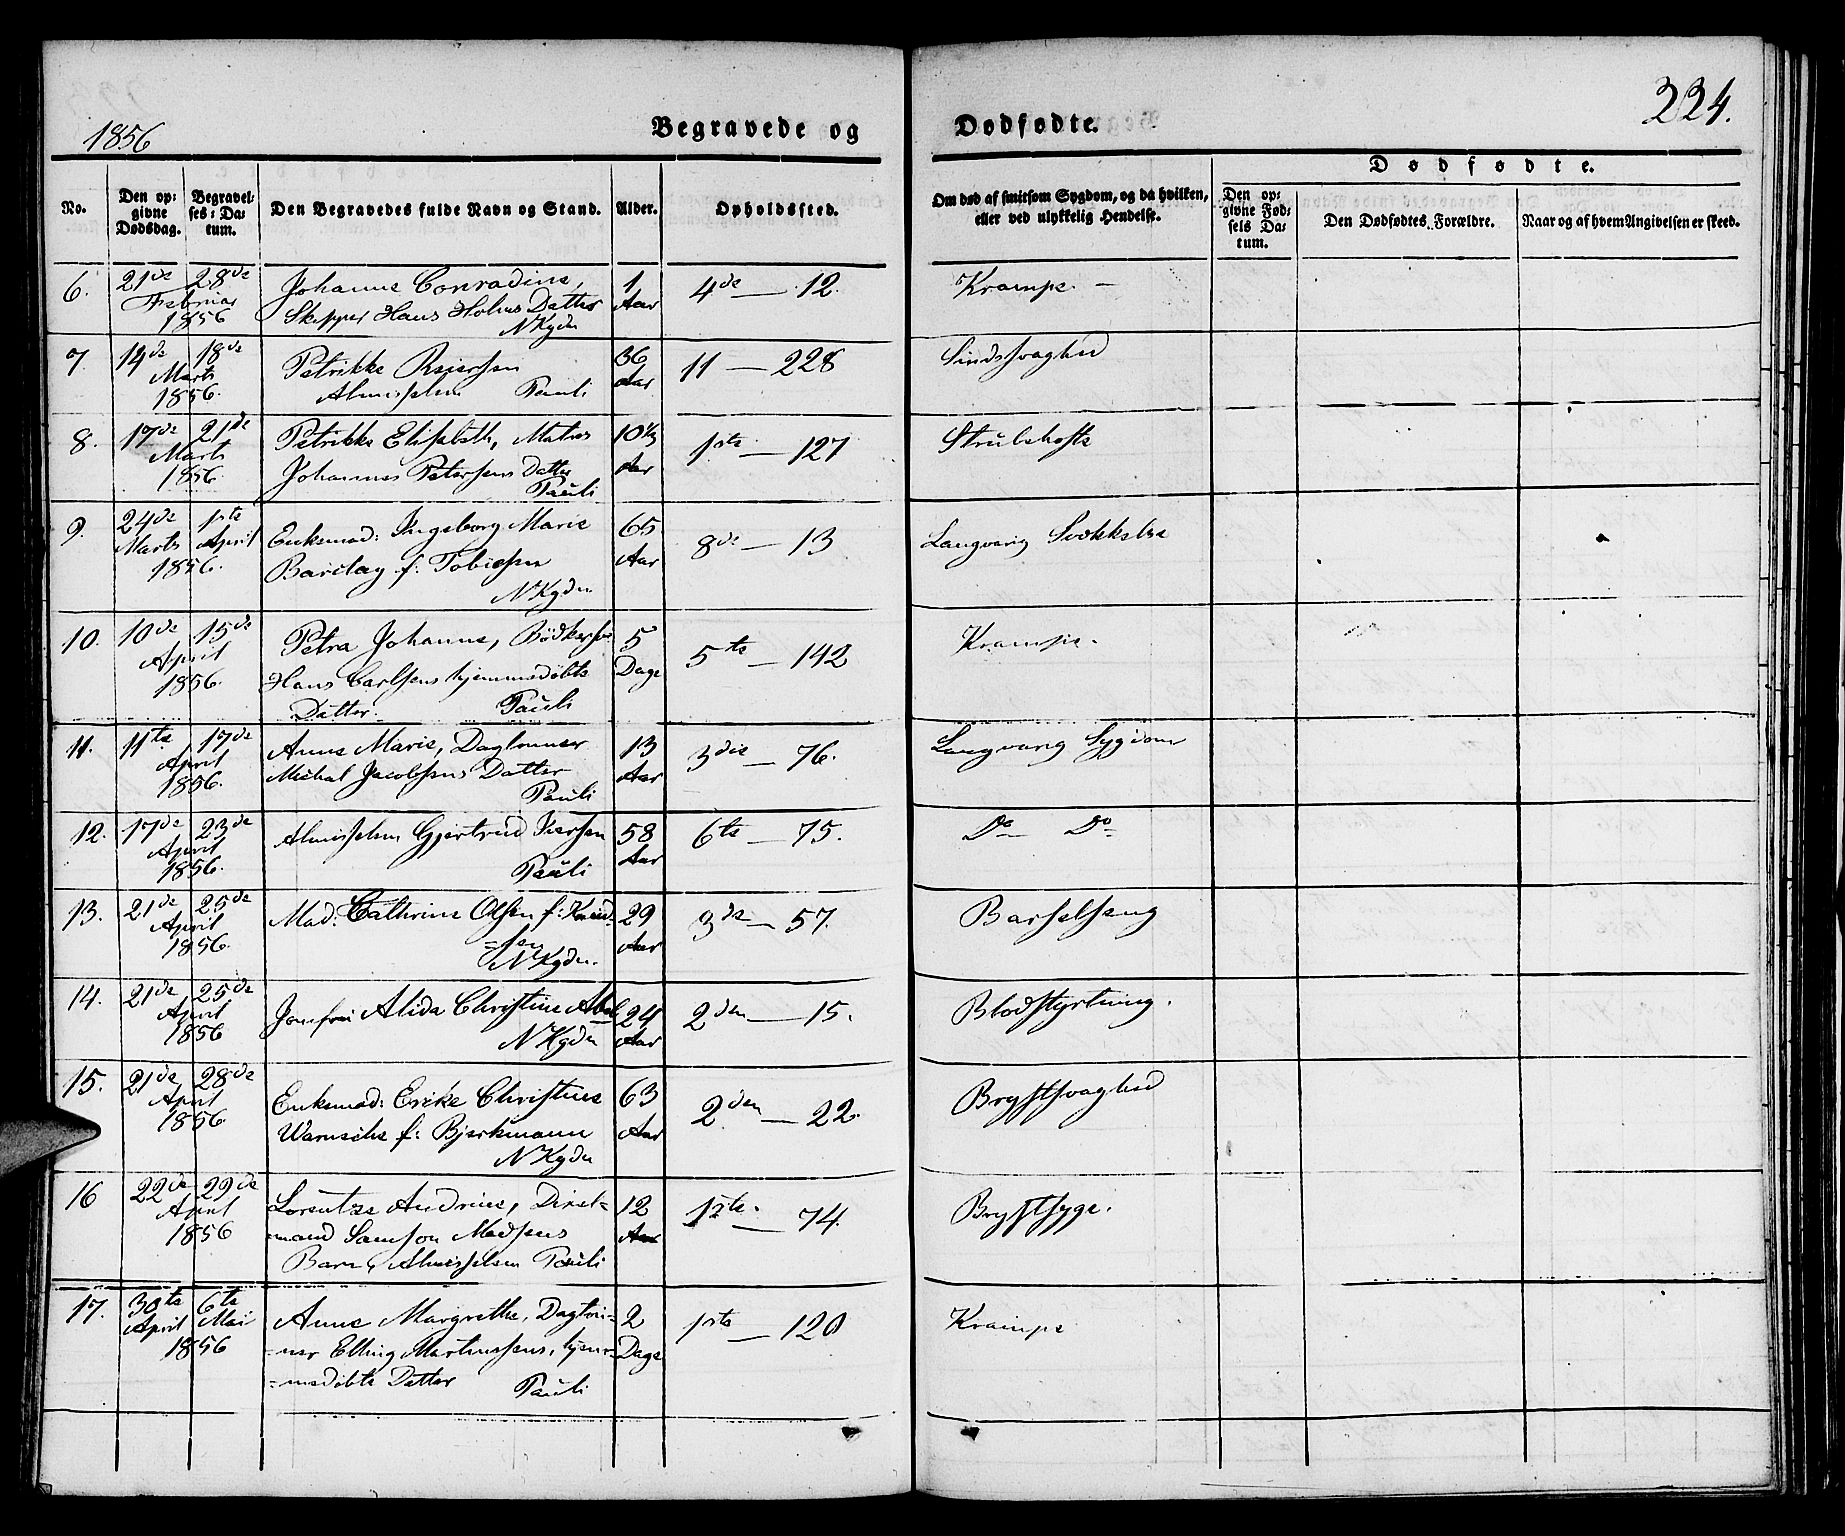 1856
Begravede og Dødfødte.
224.
Dødfødte.
No.
Den opgivne Dødsdag.
Begravelses-Datum.
Den Begravedes fulde Navn og Stand.
Alder.
Opholdssted.
Om død af smitsom Sygdom, og da hvilken, eller ved ulykkelig Hendelse.
Den opgivne Fødsels Datum.
Den Dødfødtes Forældre.
Naar og af hvem Angivelsen er skeed.
6. 21de 28de Johanne Conradine, 1 4de — 12. Krampe. –
Februar Skipper Hans Holms Datter Aar
1856 NKgdn
7. 14de 18de Petrikke Reiersen 36 11 — 228 Sindssvaghed
Marts Almisselem Pauli Aar
1856.
8. 17de 21de Petrikke Elisabeth, Matros 10½ 1ste — 127 Strubehoste
Marts Johannes Petersens Datter Aar
1856. Pauli
9. 24de 1ste Enkemad: Ingeborg Marie 65 8de — 13 Langvarig Svækkelse
Marts April Barclay f: Tobiesen Aar
1856. NKgdn
10. 10de 15de Petra Johanne, Bødkersv. 5 5te — 142 Krampe.
April Hans Carlsens hjemmedøbte Dage
1856. Datter. Pauli
11. 11te 17de Anne Marie, Daglønner 13 3die — 76. Langvarig Sygdom
April Michal Jacobsens Datter Aar
1856. Pauli
12. 17de 23de Almisselem Gjertrud Iversen 58 6te — 75. Do Do
April Pauli Aar
1856.
13. 21de 25de Mad: Cathrine Olsen f: Knud- 29 3de — 57. Barselseng
April =sen Aar
1856. NKgdn.
14. 21de 25de Jomfru Alida Christine Abel 24 2den — 15. Blodstyrtning.
April NKgdn Aar
1856
15. 21de 28de Enkemad: Ericke Christine 63 2den — 22. Brystsvaghed
April Warnecke f: Bjerkmann Aar
1856. NKgdn
16 22de 29de Lorentze Andrine, Dixel- 12 1ste. — 74. Brystsyge.
April =mand Samson Madsens Aar
1856 Barn, Almisselem Pauli
17. 30te 6te Anne Margrethe, Dagløn- 2 1ste — 120 Krampe
April Mai =ner Elling Martinssens, hjem- Dage
1856 =medøbte Datter Pauli